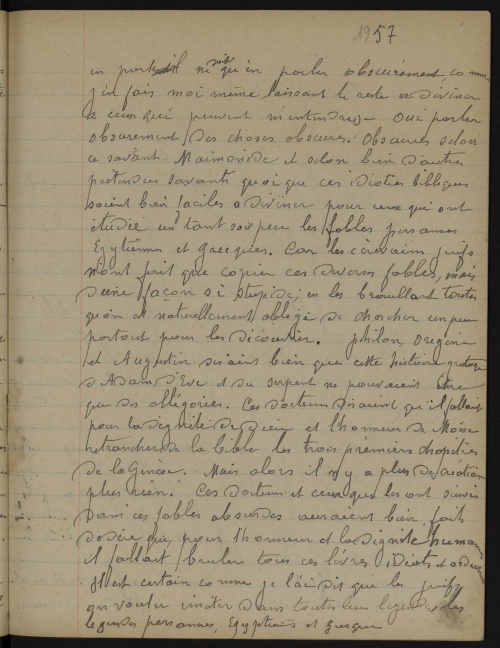 1957
en parle ni soit qu'en parler obscurément, comme
j'en fais moi même laissant le reste a diviner
a ceux qui peuvent m'entendre. Oui parler
obscurement des choses obscures. Obscures selon
ce savant Maimonide et selon bien d'autres
pretendus savants quoique ces idioties bibliques
soient bien faciles a diviner pour ceux qui ont
étudie un tant soit peu les fables persannes
Egytiennes et grecques. Car les écrivains juifs
n'ont fait que copier ces diverses fables, mais
d'une façon si stupide, en les brouillant toutes
qu'on est naturellement obligé de chercher un peu
partout pour les découvrir. philon, origine
et Augustin disaient bien que cette histoire grotesque
d'Adam d'Eve et du Serpent ne pouvaient être
que des alligories. Ces docteurs disaient qu'il fallait
pour la dignité de Dieu et l'honneur de Moïse
retrancher de la bible les trois premiers chapitres
de la Ginèse. Mais alors il n'y a plus de création
plus rien. Ces docteurs et ceux que les ont suivis
dans ces fables absurdes auraient bien fait
de dire que pour l'honneur et la dignité humaine
il fallait bruler tous ces livres idiots et
Il est certain comme je l'ai dis que les juifs
on voulu imiter dans toutes leurs legendes les
legendes persannes, Egyptiens et Grecques